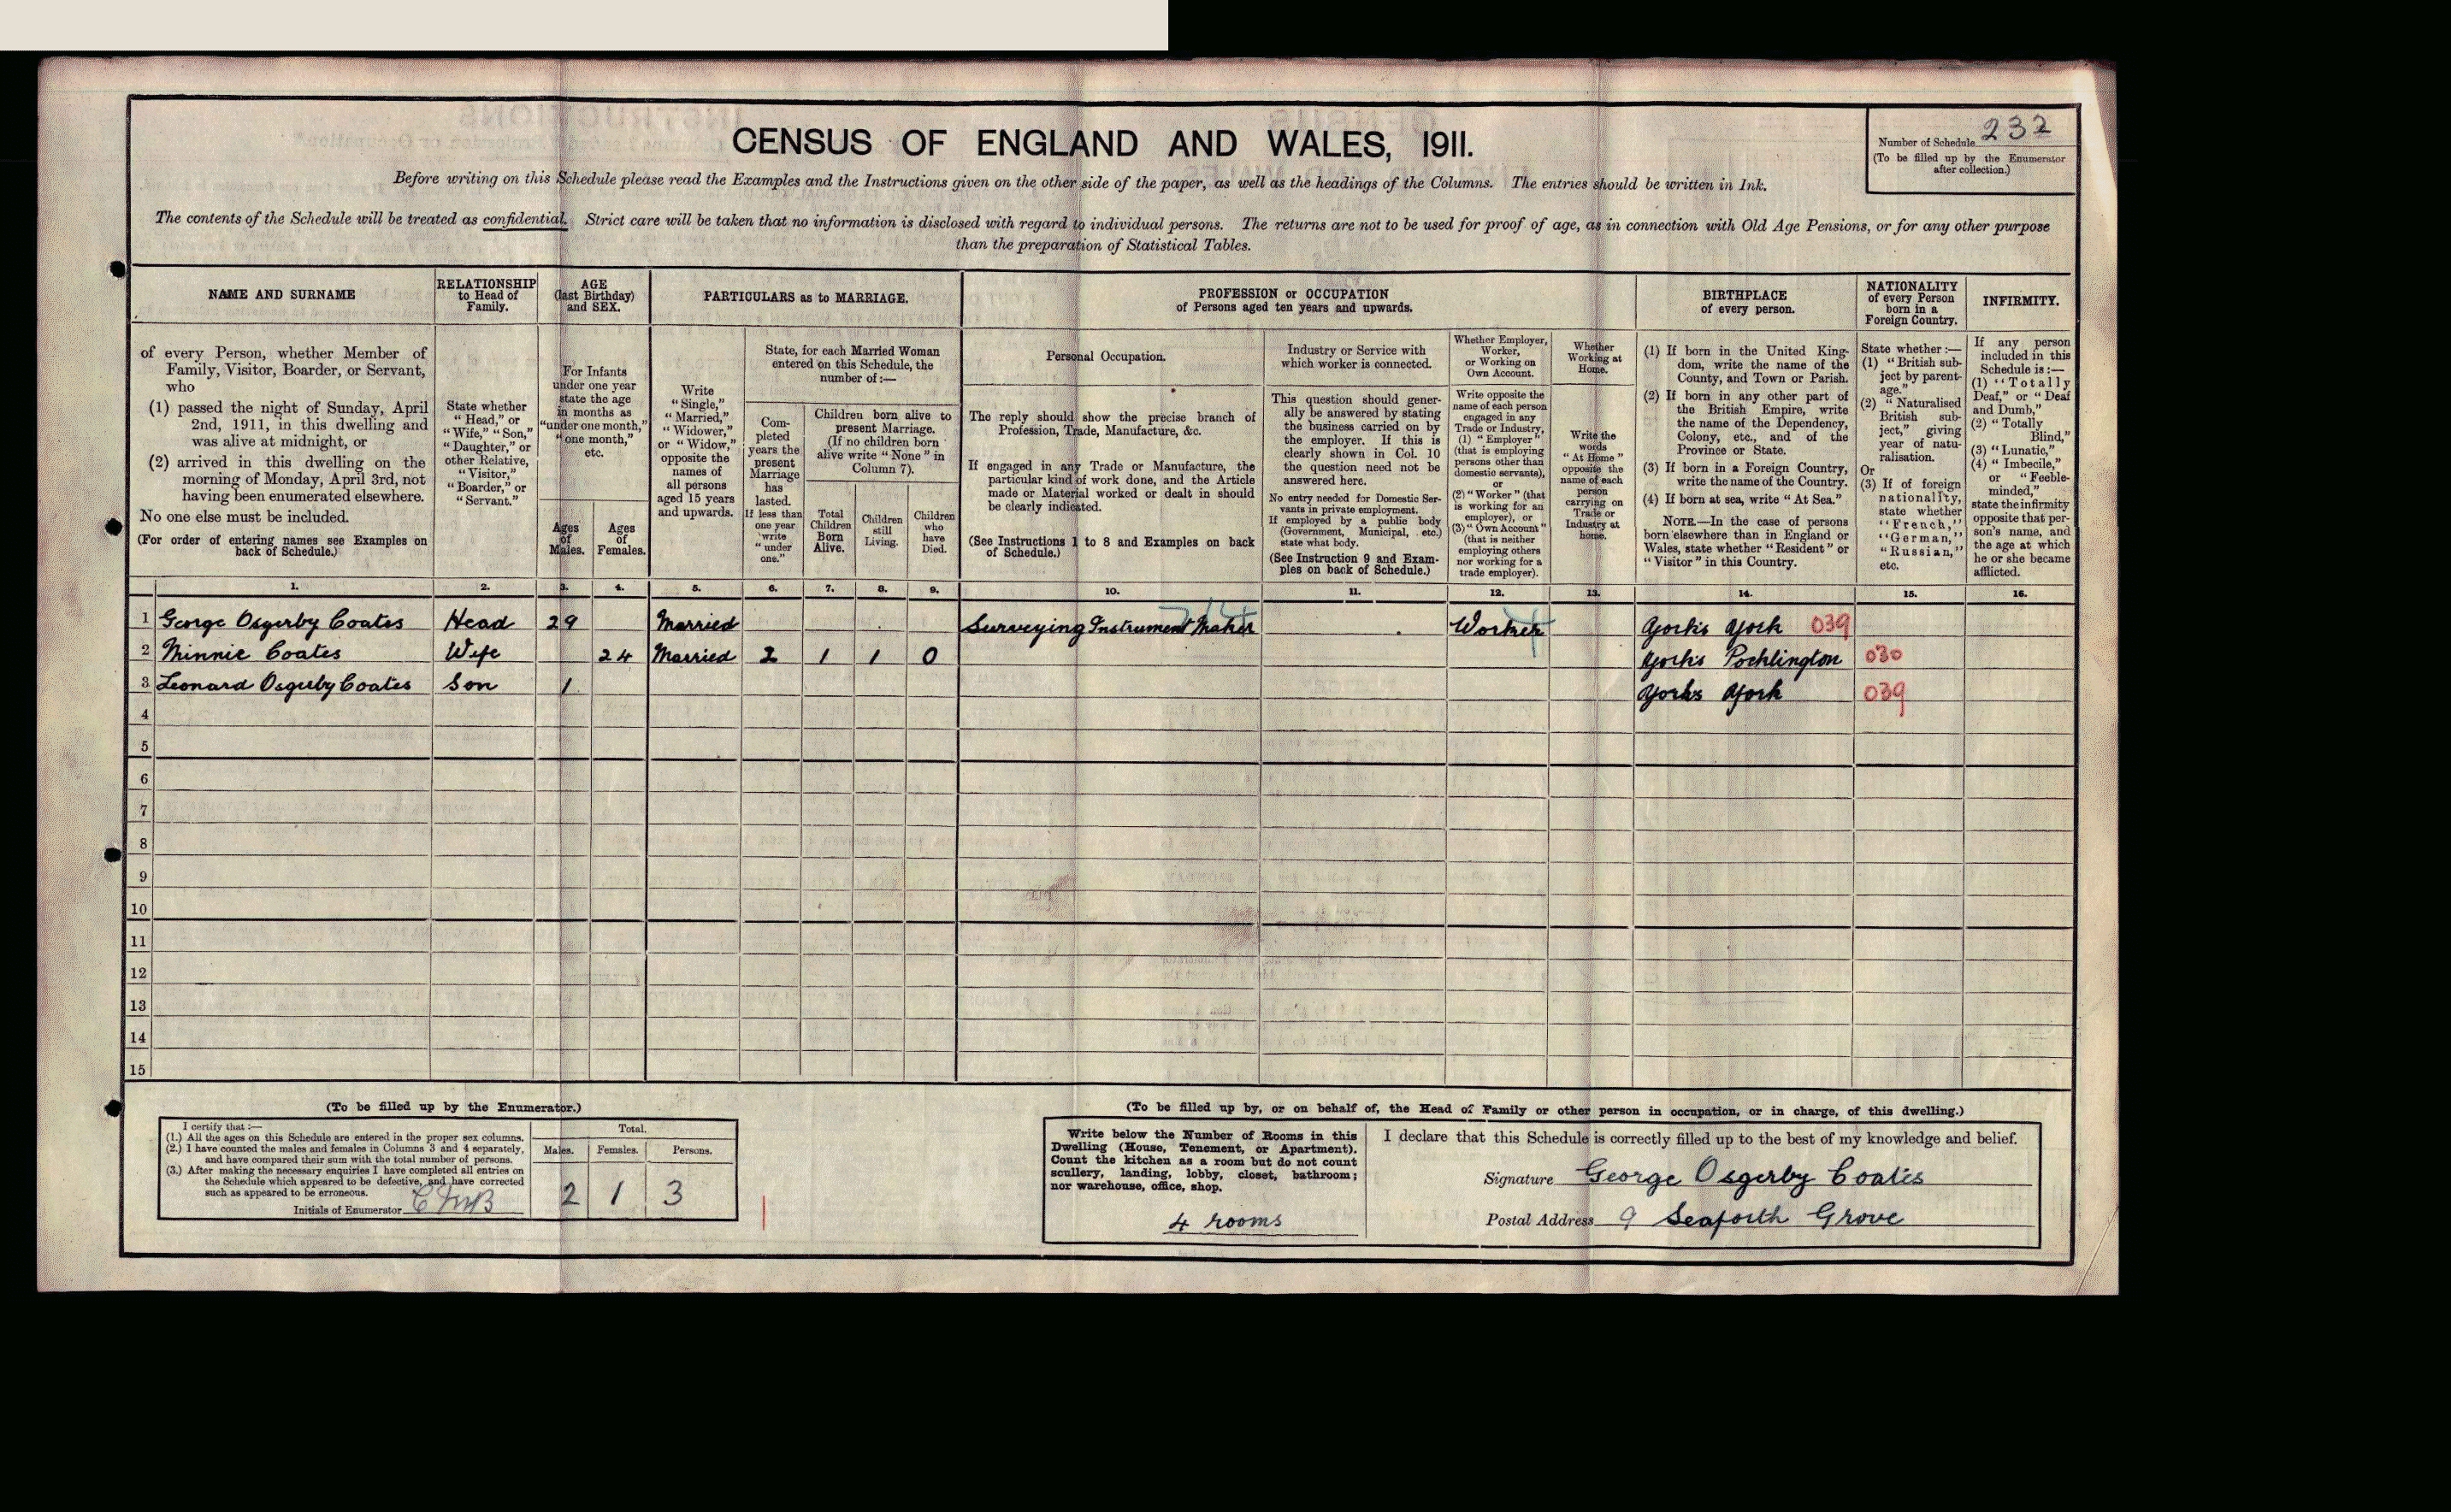 CENSUS OF ENGLAND AND WALES, 1911.
Number of Schedule 232
(To be filled up by the Enumerator
after collection.)
Before writing on this Schedule please read the Examples and the Instructions given on the other side of the paper, as well as the headings of the Columns. The entries should be written in Ink.
The contents of the Schedule will be treated as confidential. Strict care will be taken that no information is disclosed with regard to individual persons. The returns are not to be used for proof of age, as in connection with Old Age Pensions, or for any other purpose
than the preparation of Statistical Tables.
NAME AND SURNAME
of every Person, whether Member of
Family, Visitor, Boarder, or Servant,
who
(1) passed the night of Sunday, April
2nd, 1911, in this dwelling and
was alive at midnight, or
(2) arrived in this dwelling on the
morning of Monday, April 3rd, not
having been enumerated elsewhere.
No one else must be included.
(For order of entering names see Examples on
back of Schedule.)
RELATIONSHIP
to Head of
Family.
State whether
"Head," or
"Wife," "Son,"
"Daughter," or
other Relative,
"Visitor,"
"Boarder," or
"Servant."
AGE
(last Birthday)
and SEX.
For Infants
under one year
state the age
in months as
"under one month,"
"one month,"
etc.
Ages
of
Males.
Ages
of
Females.
PARTICULARS as to MARRIAGE.
Write
"Single,"
"Married,"
"Widower,"
or "Widow,"
opposite the
names of
all persons
aged 15 years
and upwards.
State, for each Married Woman
entered on this Schedule, the
number of :—
Com-
pleted
years the
present
Marriage
has
lasted.
If less than
one year
write
"under
one."
Children born alive to
present Marriage.
(If no children born
alive write "None" in
Column 7).
Total
Children
Born
Alive.
Children
still
Living.
Children
who
have
Died.
PROFESSION or OCCUPATION
of Persons aged ten years and upwards.
Personal Occupation.
The reply should show the precise branch of
Profession, Trade, Manufacture, &c.
If engaged in any Trade or Manufacture, the
particular kind of work done, and the Article
made or Material worked or dealt in should
be clearly indicated.
(See Instructions 1 to 8 and Examples on back
of Schedule.)
Industry or Service with
which worker is connected.
This question should gener-
ally be answered by stating
the business carried on by
the employer. If this is
clearly shown in Col. 10
the question need not be
answered here.
No entry needed for Domestic Ser-
vants in private employment.
If employed by a public body
(Government, Municipal, etc.)
state what body.
(See Instruction 9 and Exam-
ples on back of Schedule.)
Whether Employer,
Worker,
or Working on
Own Account.
Write opposite the
name of each person
engaged in any
Trade or Industry,
(1) "Employer"
(that is employing
persons other than
domestic servants),
or
(2) "Worker" (that
is working for an
employer), or
(3) "Own Account"
(that is neither
employing others
nor working for a
trade employer).
Whether
Working at
Home.
Write the
words
"At Home"
opposite the
name of each
person
carrying on
Trade or
Industry at
home.
BIRTHPLACE
of every person.
(1) If born in the United King-
dom, write the name of the
County, and Town or Parish.
(2) If born in any other part of
the British Empire, write
the name of the Dependency,
Colony, etc., and of the
Province or State.
(3) If born in a Foreign Country,
write the name of the Country.
(4) If born at sea, write "At Sea."
NOTE.—In the case of persons
born elsewhere than in England or
Wales, state whether "Resident" or
"Visitor" in this Country.
NATIONALITY
of every Person
born in a
Foreign Country.
State whether :—
(1) "British sub-
ject by parent-
age."
(2) "Naturalised
British sub-
ject," giving
year of natu-
ralisation.
Or
(3) If of foreign
nationality,
state whether
"French,"
"German,"
"Russian,"
etc.
INFIRMITY.
If any person
included in this
Schedule is :—
(1) "Totally
Deaf," or "Deaf
and Dumb,"
(2) "Totally
Blind,"
(3) "Lunatic,"
(4) "Imbecile,"
or "Feeble-
minded,"
state the infirmity
opposite that per-
son's name, and
the age at which
he or she became
afflicted.
1. 2. 3. 4. 5. 6. 7. 8. 9. 10. 11. 12. 13. 14. 15. 16.
1 George Osgerby Coates Head 29 Married Surveying Instrument Maker Worker Yorks York 039
2 Minnie Coates Wife 24 Married 2 1 1 0 Yorks Pocklington 030
3 Leonard Osgerby Coates Son 1 Yorks York 039
4
5
6
7
8
9
10
11
12
13
14
15
(To be filled up by the Enumerator.)
I certify that :—
(1.) All the ages on this Schedule are entered in the proper sex columns.
(2.) I have counted the males and females in Columns 3 and 4 separately,
and have compared their sum with the total number of persons.
(3.) After making the necessary enquiries I have completed all entries on
the Schedule which appeared to be defective, and have corrected
such as appeared to be erroneous.
Initials of Enumerator
Total.
Males. Females. Persons.
2 1 3
(To be filled up by, or on behalf of, the Head of Family or other person in occupation, or in charge, of this dwelling.)
Write below the Number of Rooms in this
Dwelling (House, Tenement, or Apartment).
Count the kitchen as a room but do not count
scullery, landing, lobby, closet, bathroom;
nor warehouse, office, shop.
4 rooms
I declare that this Schedule is correctly filled up to the best of my knowledge and belief.
Signature George Osgerby Coates
Postal Address 9 Seaforth Grove